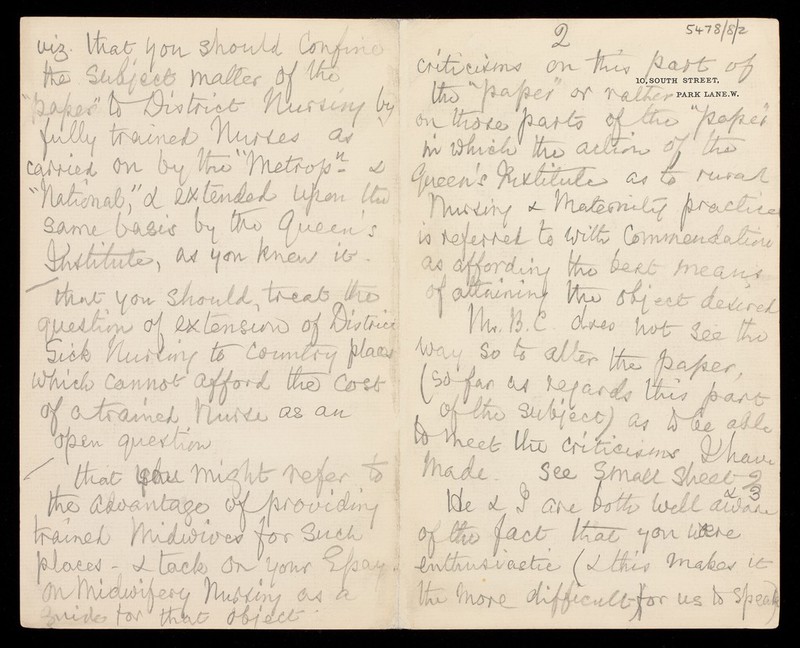 viz. that you should confine
the subject matter of the
"paper" to District Nursing by
fully trained Nurses as
carried on by the "Metropn. &
"National," & extended upon the
same basis by the Queen's
Institute, as you knew it.
that you should, treat the
question of extension of District
Sick Nursing to Country places
which cannot afford the cost
of a trained Nurse as an
open question
that you might refer to
the advantage of providing
trained Midwives for such
places - & tack on your Essay
on Midwifery Nursing as a
guide for that object.
2
5478/8/2
10, SOUTH STREET,
PARK LANE. W.
criticisms on this part of
the "paper" or rather
on those parts of the "paper"
in which the action of the
Queen's Institute as to rural
Nursing & Maternity practice
is referred to with Commendation
as affording the best means
of attaining the object desired
Mr. B.C. does not see the
way so to alter the paper,
(so far as regards this part
of the subject) as to be able
to meet the criticisms I have
made. See small sheet 2
& 3
He & I are both well aware
of the fact that you were
enthusiastic (& this makes it
the more difficult for us to speak)